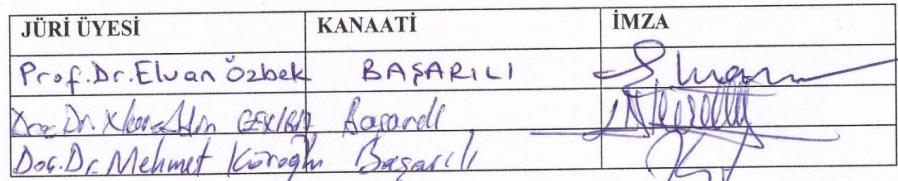 JÜRİ ÜYESİ KANAATİ İMZA
Prof.Dr.Elvan Özbek BAŞARILI
Doç.Dr. Başarılı
Doç.Dr.Mehmet Köroğlu Başarılı